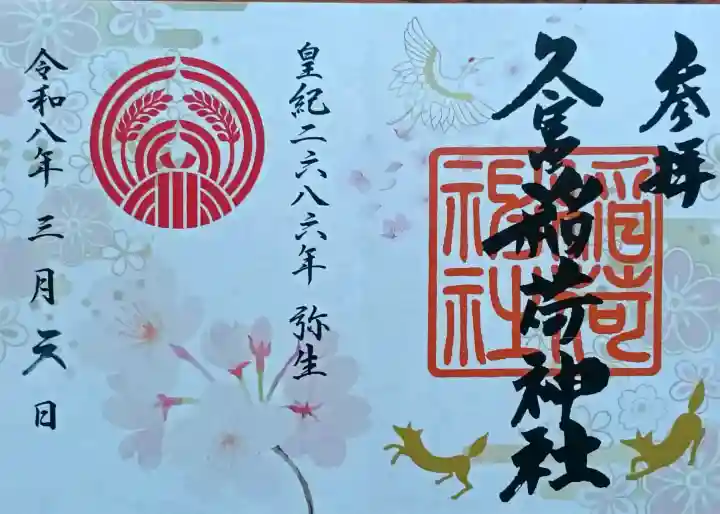 参拝
久宮稲荷神社
稲荷神社
皇紀二六八六年 弥生
令和八年 三月 日